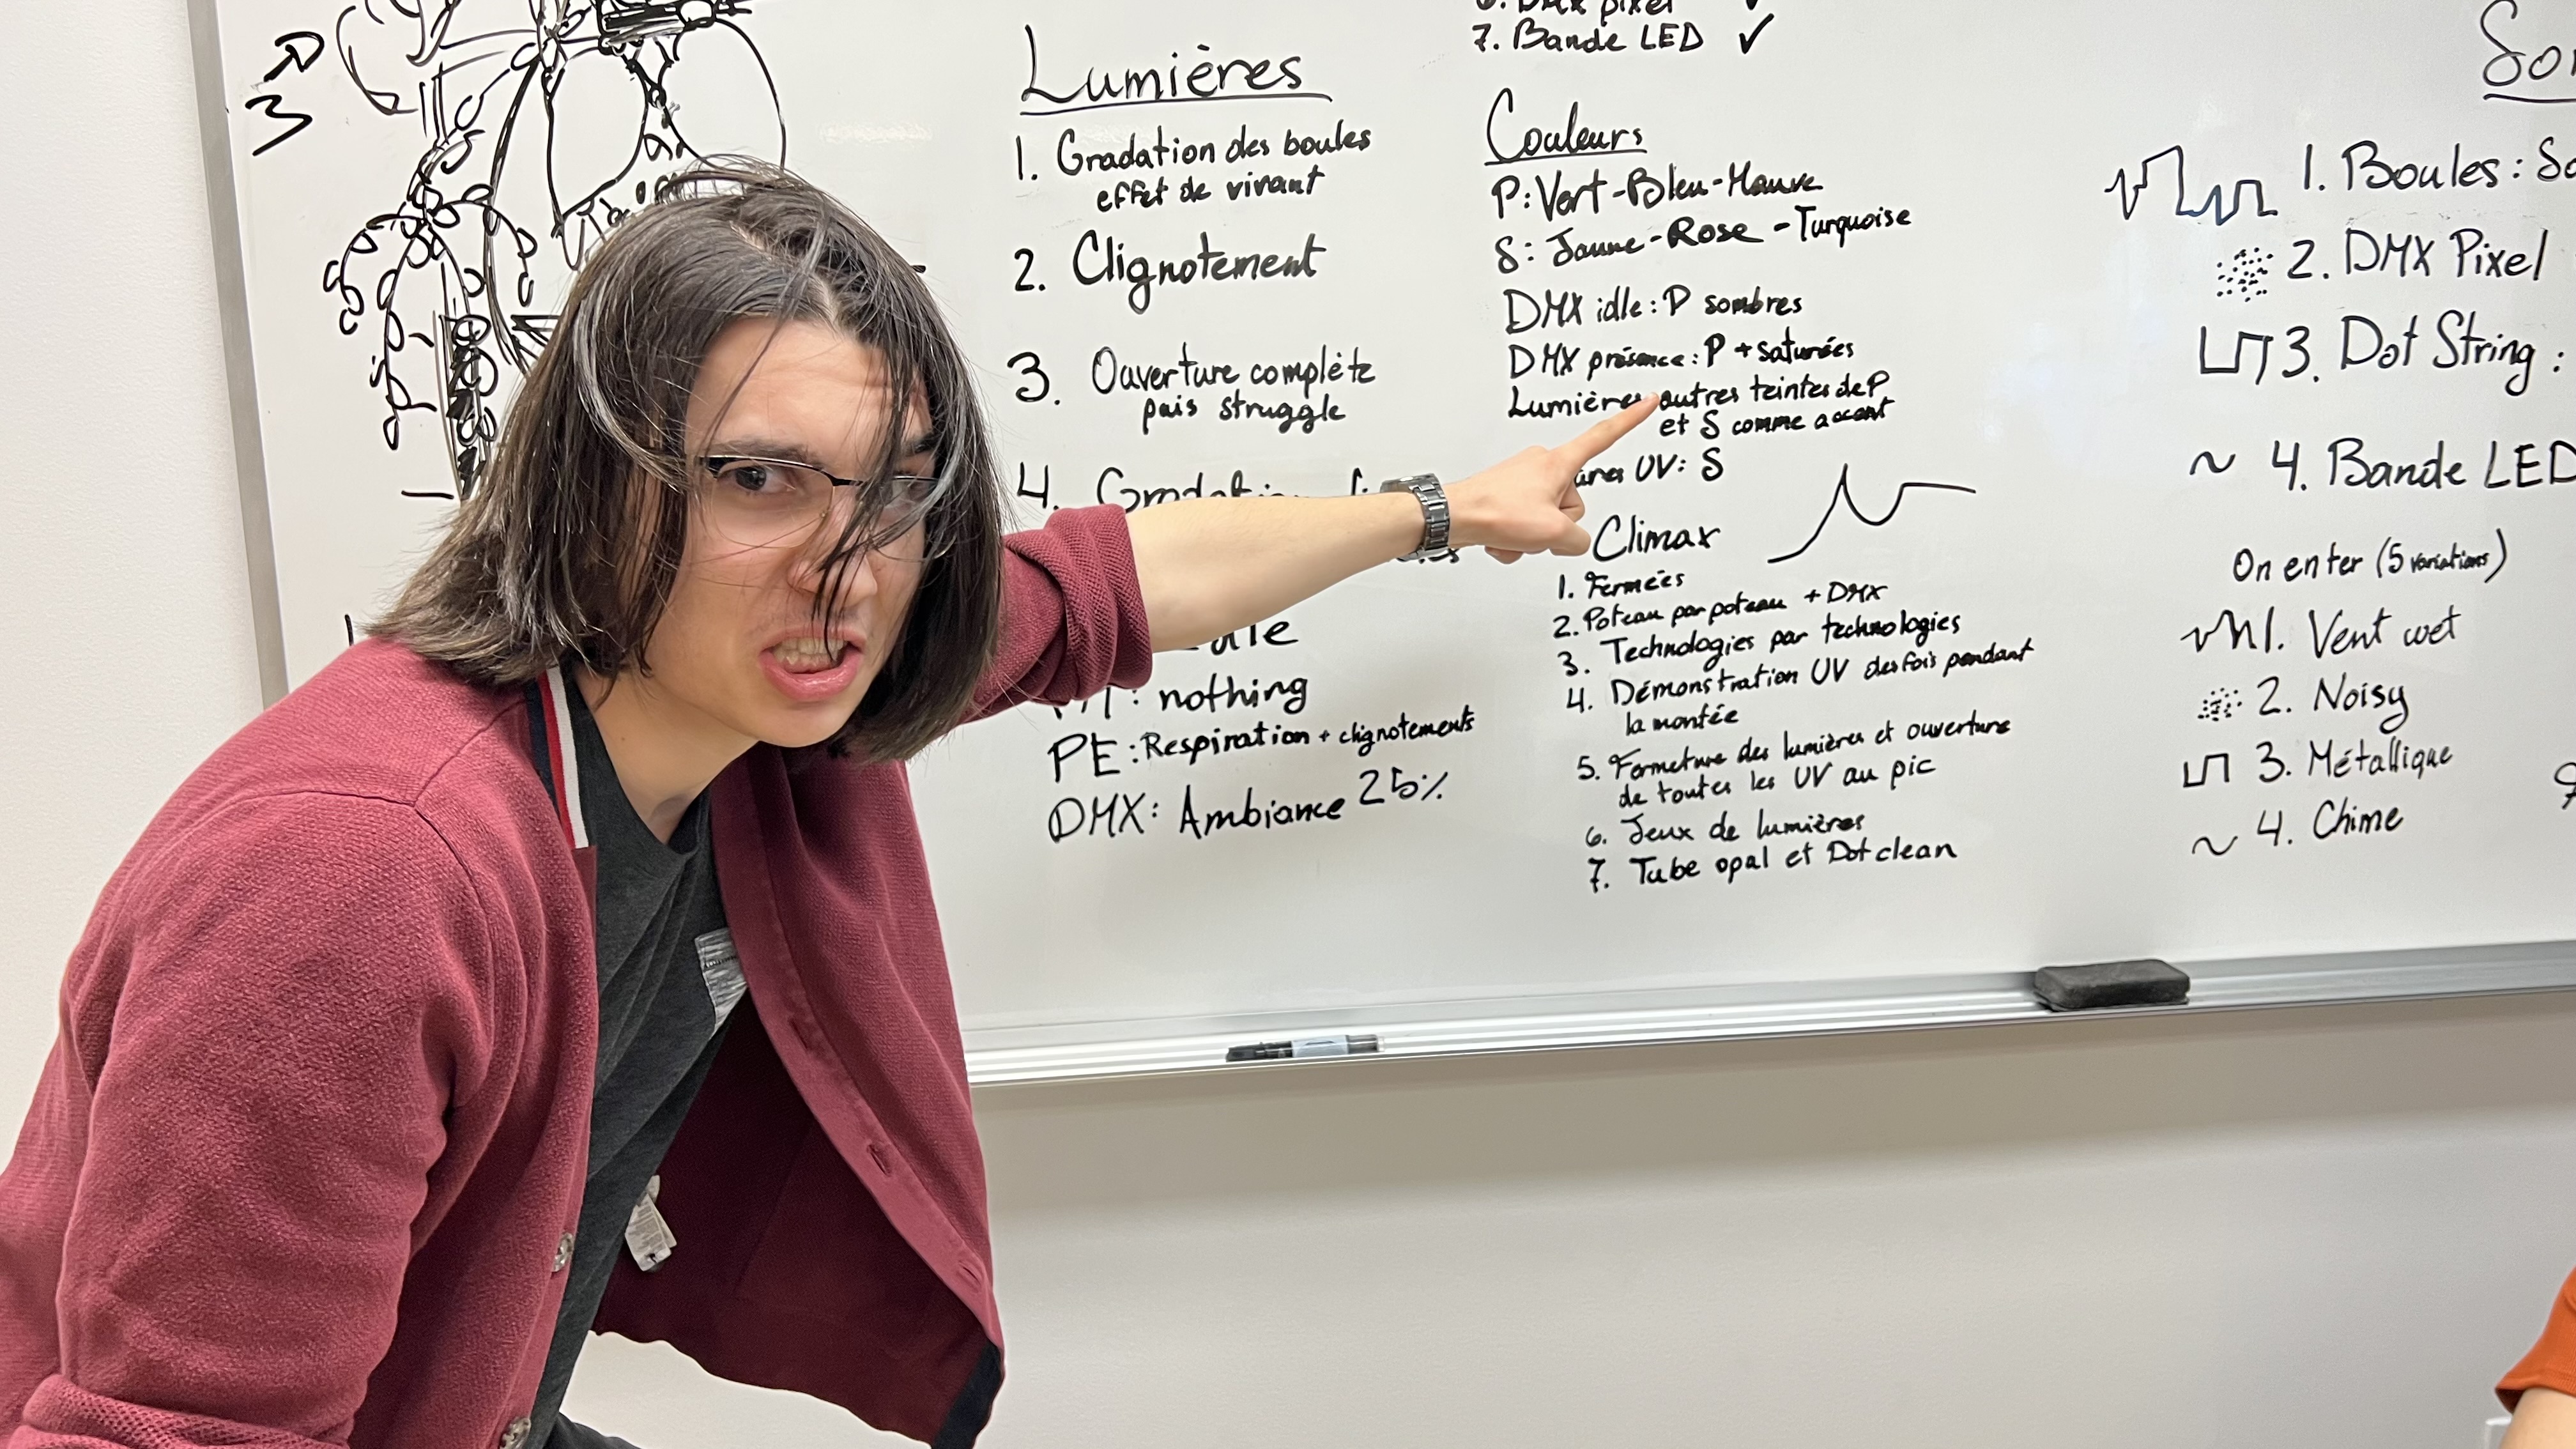 3
Lumières
1. Gradation des boules
effet de vivant
2. Clignotement
3. Ouverture complète
puis struggle
4. Gradation
nothing
PE : Respiration + clignotements
DMX : Ambiance 25%
7. Bande LED ✓
Couleurs
P : Vert - Bleu - Mauve
S : Jaune - Rose - Turquoise
DMX idle : P sombres
DMX présence : P + saturées
Lumières autres teintes de P
et S comme accent
UV : S
Climax
1. Fermées
2. Poteau par poteau + DMX
3. Technologies par technologies
4. Démonstration UV des fois pendant
la montée
5. Fermeture des lumières et ouverture
de toutes les UV au pic
6. Jeux de lumières
7. Tube opal et Dot clean
1. Boules :
2. DMX Pixel
3. Dot String :
4. Bande LED
On enter (5 variations)
1. Vent wet
2. Noisy
3. Métallique
4. Chime